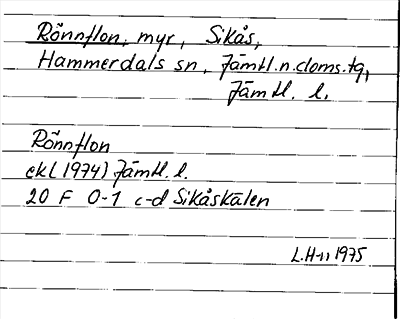 Rönnflon, myr, Sikås,
Hammerdals sn, Jämtl.n.doms.tg,
Jämtl. l.
Rönnflon
ek (1974) Jämtl. l.
20 F 0-1 c-d Sikåskälen
L.H-n 1975